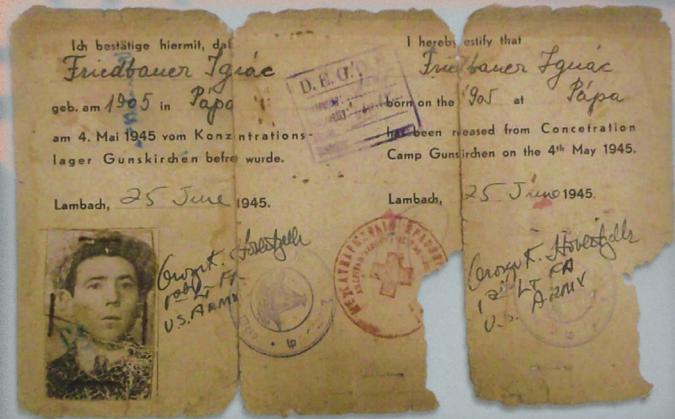 Ich bestätige hiermit, daß
Friedbauer Ignác
geb. am 1905 in Pápa
am 4. Mai 1945 vom Konzentrations-
lager Gunskirchen befreit wurde.
Lambach, 25 June 1945.
1st LT FA
U.S. ARMY
D.E.G.O.
I hereby certify that
Friedbauer Ignác
born on the 1905 at Pápa
has been released from Concetration
Camp Gunskirchen on the 4th May 1945.
Lambach, 25 June 1945.
1st LT FA
U.S. ARMY